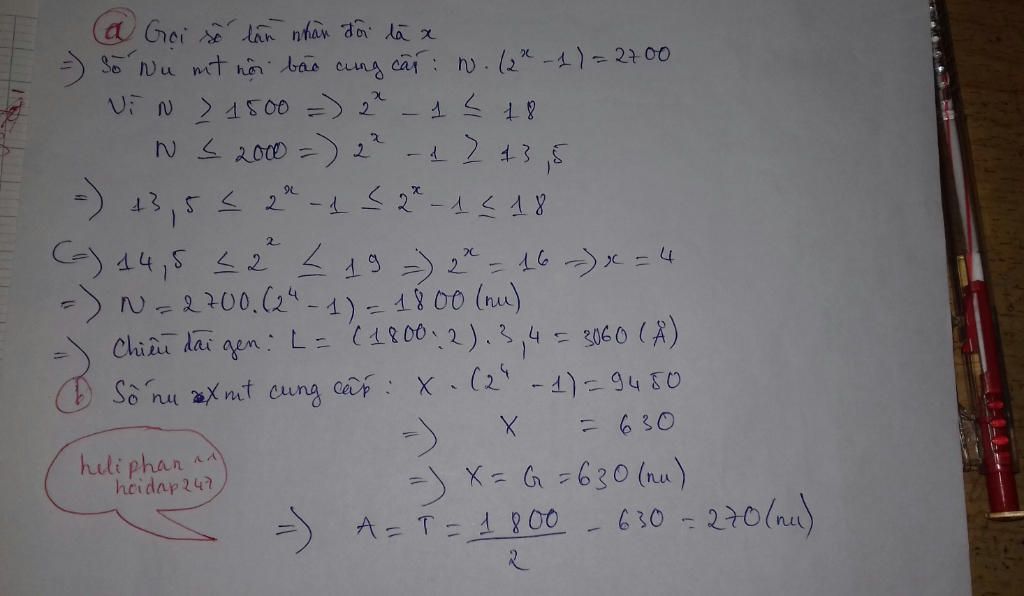 a Gọi số lần nhân đôi là x
=) Số Nu mt nội bào cung cấp: N.(2^x - 1) = 2700
Vì N ≥ 1500 =) 2^x - 1 ≤ 18
N ≤ 2000 =) 2^x - 1 ≥ 13,5
=) 13,5 ≤ 2^x - 1 ≤ 2^x - 1 ≤ 18
(=) 14,5 ≤ 2^x ≤ 19 =) 2^x = 16 =) x = 4
=) N = 2700.(2^4 - 1) = 1800 (nu)
=) Chiều dài gen: L = (1800:2).3,4 = 3060 (Å)
b Số nu X mt cung cấp: X.(2^4 - 1) = 9450
=) X = 630
=) X = G = 630 (nu)
=) A = T = 1800/2 - 630 = 270 (nu)
heliphan
hoidap247